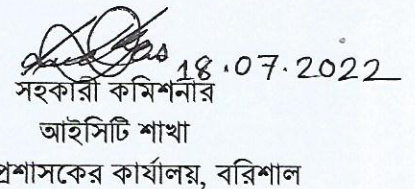 18.07.2022
সহকারী কমিশনার
আইসিটি শাখা
প্রশাসকের কার্যালয়, বরিশাল